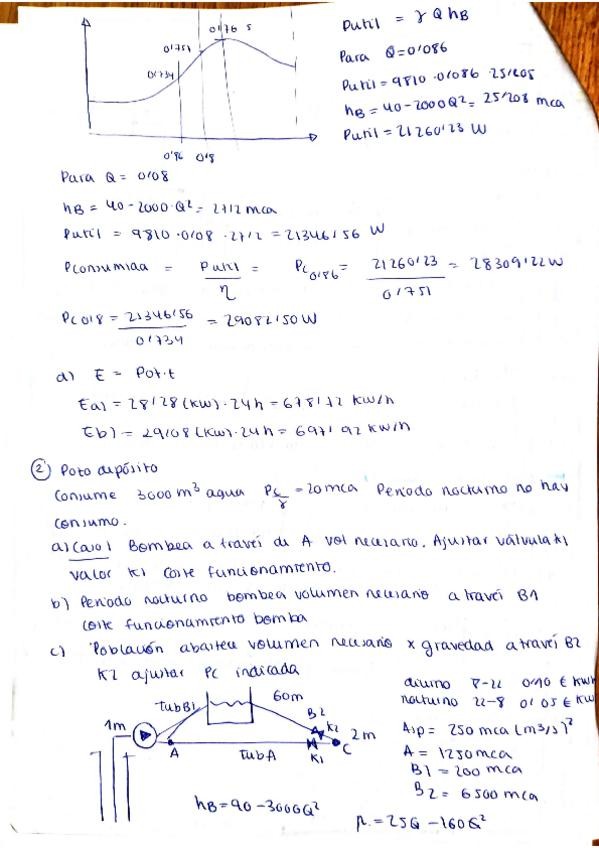 0'76 5
0'751
0'734
0'86 0'8
Putil = γ Q hB
Para Q=0'086
Putil = 9810 · 0'086 · 25'205
hB = 40-2000Q² = 25'208 mca
Putil = 21260'23 W
Para Q = 0'08
hB = 40-2000·Q² = 27'2 mca
Putil = 9810 · 0'08 · 27'2 = 21346'56 W
Pconsumida = Putil / η = Pc0'86 = 21260'23 / 0'751 = 28309'22 W
Pc0'8 = 21346'56 / 0'734 = 29082'50 W
d) E = Pot·t
Ea) = 28'28 (kW)·24h = 678'72 kW/h
Eb) = 29'08 (kW)·24h = 697'92 kW/h
② Pozo depósito
Consume 3000 m³ agua Pc/γ = 20 mca Periodo nocturno no hay
consumo.
a) Caso 1 Bombea a través de A vol necesario. Ajustar válvula K1
valor K1 coste funcionamiento.
b) Periodo nocturno bombea volumen necesario a través B1
coste funcionamiento bomba
c) Población abastece volumen necesario x gravedad a través B2
K2 ajustar Pc indicada
diurno 8-22 0'10 € kWh
nocturno 22-8 0'05 € kW
Asp = 250 mca (m³/s)²
A = 1250 mca
B1 = 200 mca
B2 = 6500 mca
1m
tub B1
60m
B2
K2
2m
A
tub A
K1
C
hB = 90 - 3000Q²
= 25Q - 160Q²